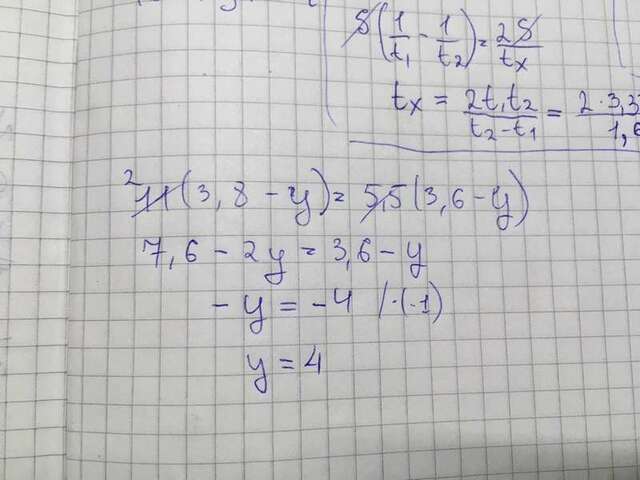 S(1/t₁ - 1/t₂) = 2S/tₓ
tₓ = 2t₁t₂/(t₂-t₁) = 2·3,3
1,6
² 11(3,8 - y) = 5,5(3,6 - y)
7,6 - 2y = 3,6 - y
- y = -4 /·(-1)
y = 4